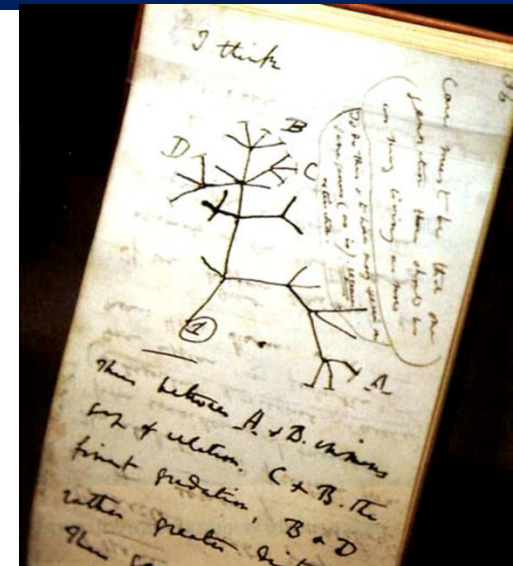 36
I think
Case must be that one
generation then should be
as many living as now
To do this & to have many species in
same genus (as is) requires
extinction
B
D
C
A
1
Thus between A & B. immens
gap of relation. C & B. The
finest gradation, B & D
rather greater
Thus